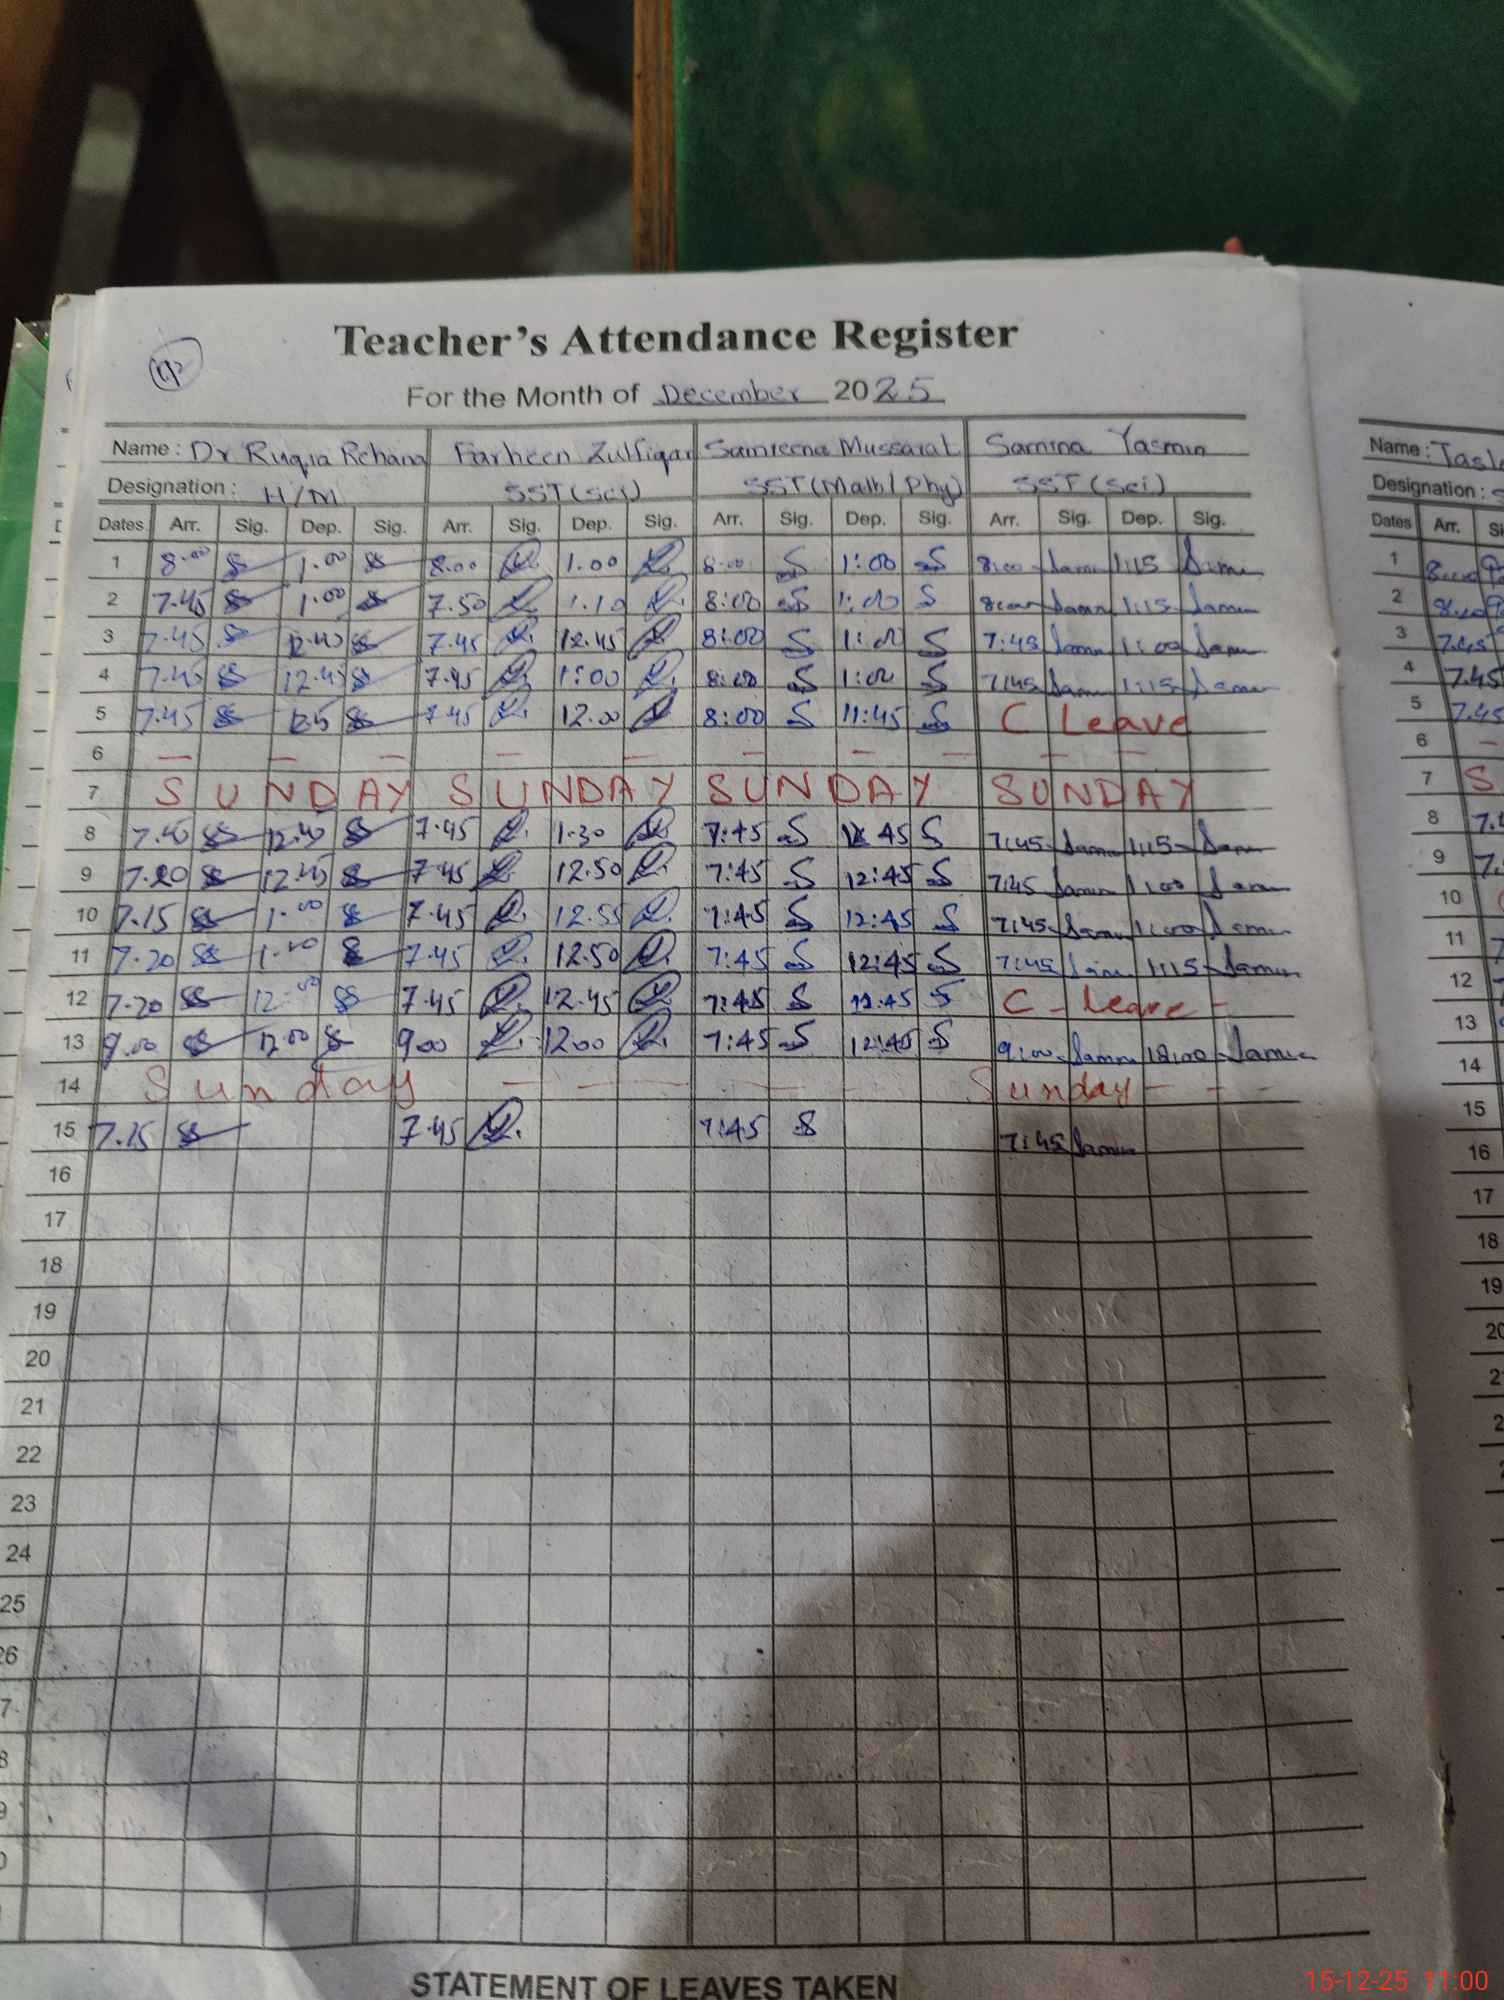 Teacher's Attendance Register
For the Month of December 2025
Name: Dr Ruqia Rehana Farheen Zulfiqar Samreena Mussarat Samina Yasmin
Designation: H/M SST(Sci) SST(Math/Phy) SST(Sci)
Dates Arr. Sig. Dep. Sig. Arr. Sig. Dep. Sig. Arr. Sig. Dep. Sig. Arr. Sig. Dep. Sig.
1 8.00 1.00 8.00 1.00 8:00 S 1:00 S 8:00 Samin 1:15 Samin
2 7.45 1.00 7.50 1.10 8:00 S 1:00 S 8:00 Samin 1:15 Samin
3 7.45 12.40 7.45 12.45 8:00 S 1:00 S 7:45 Samin 1:00 Samin
4 7.45 12.45 7.45 1:00 8:00 S 1:00 S 7:45 Samin 1:15 Samin
5 7.45 7.45 12.00 8:00 S 11:45 S C Leave
6 — — — — — — — — — —
7 SUNDAY SUNDAY SUNDAY SUNDAY
8 7.40 12.40 7.45 1.30 7:45 S 12 45 S 7:45 Samin 1:15 Samin
9 7.20 12.45 7.45 12.50 7:45 S 12:45 S 7:45 Samin 1:00 Samin
10 7.15 1.00 7.45 12.55 7:45 S 12:45 S 7:45 Samin 1:00 Samin
11 7.20 1.00 7.45 12.50 7:45 S 12:45 S 7:45 Samin 1:15 Samin
12 7.20 12.00 7.45 12.45 7:45 S 12:45 S C - Leave -
13 9.00 12.00 9.00 12.00 7:45 S 12:45 S 9:00 Samin 12:00 Samin
14 Sunday — — — — — — Sunday — — —
15 7.15 7.45 7:45 S 7:45 Samin
16
17
18
19
20
21
22
23
24
25
26
STATEMENT OF LEAVES TAKEN
Name:
Designation:
Dates Arr.
1
2
3 7.45
4 7.45
5 7.45
6 —
7 S
8
9
10
11
12
13
14
15
16
17
18
19
15-12-25 11:00